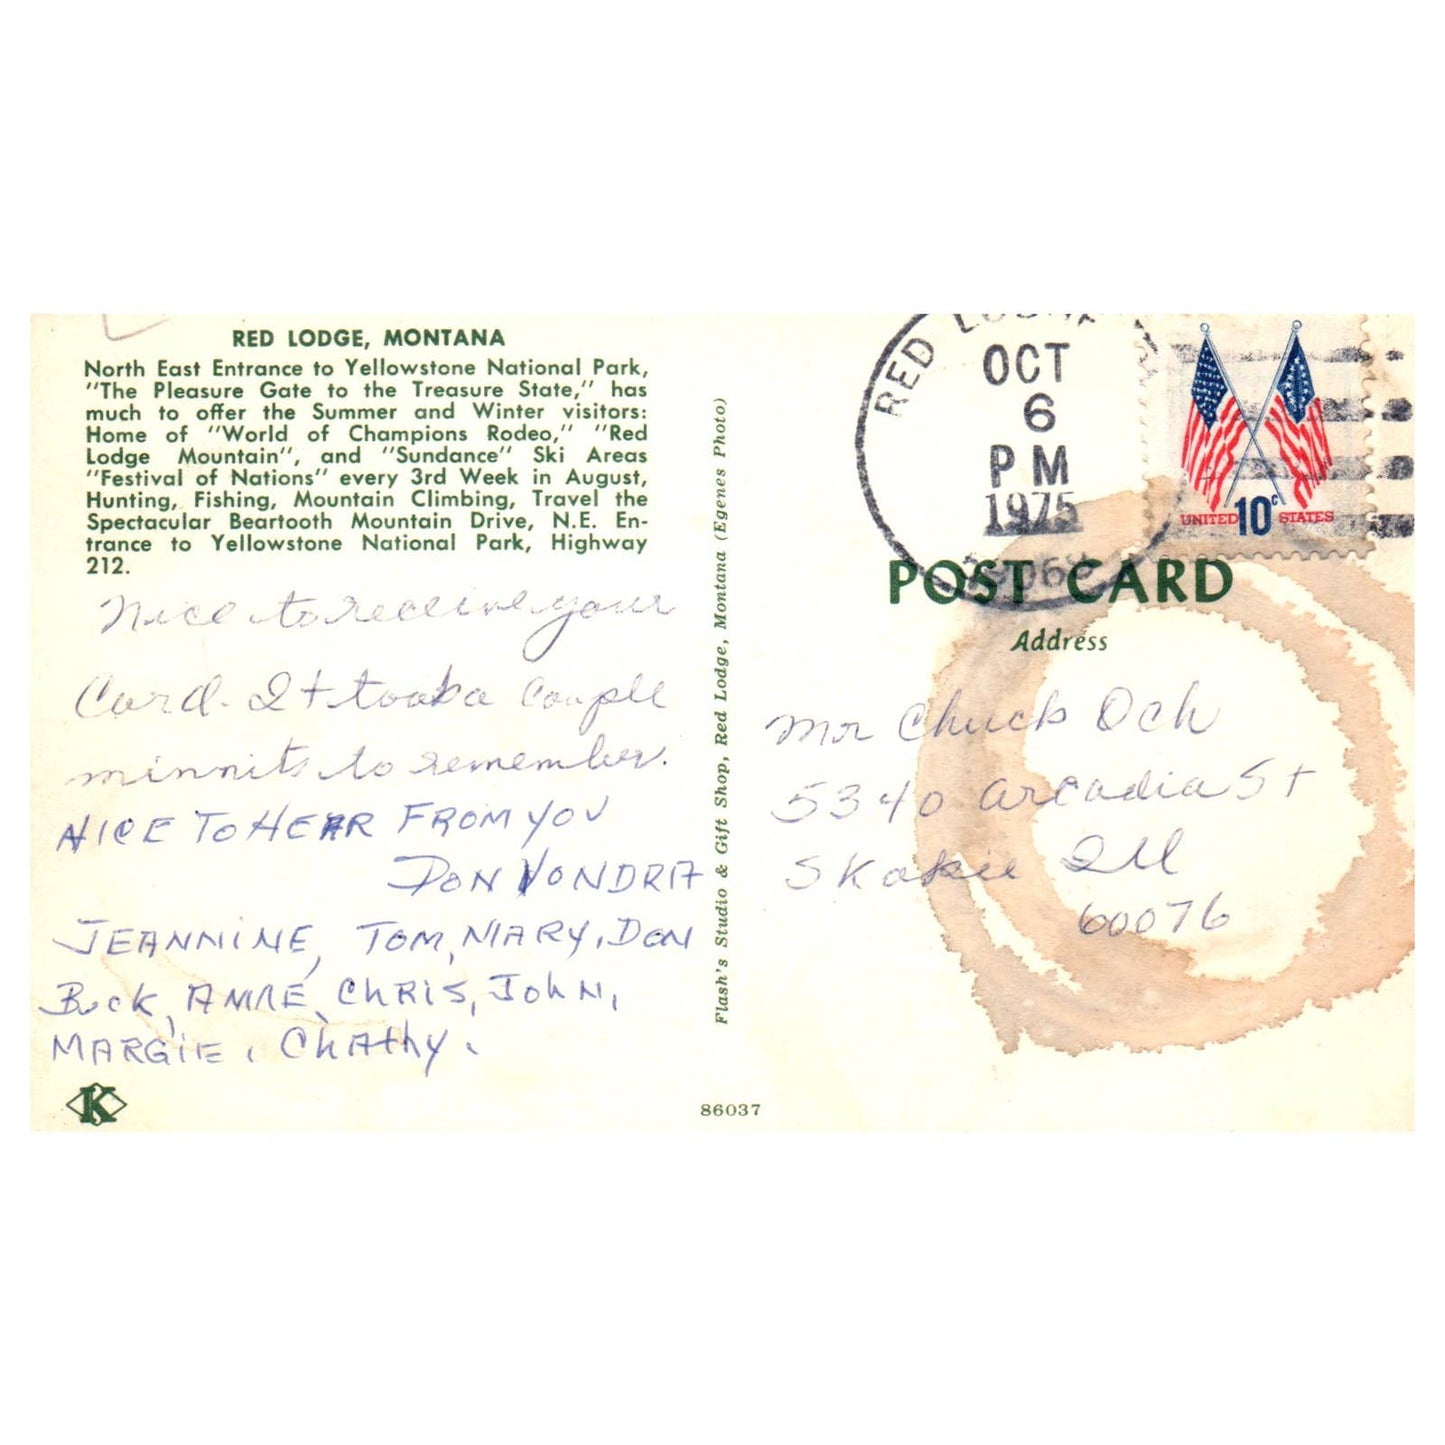 RED LODGE, MONTANA
North East Entrance to Yellowstone National Park,
"The Pleasure Gate to the Treasure State," has
much to offer the Summer and Winter visitors:
Home of "World of Champions Rodeo," "Red
Lodge Mountain", and "Sundance" Ski Areas
"Festival of Nations" every 3rd Week in August,
Hunting, Fishing, Mountain Climbing, Travel the
Spectacular Beartooth Mountain Drive, N.E. En-
trance to Yellowstone National Park, Highway
212.
Nice to receive your
Card. It took a couple
minnits to remember.
NICE TO HEAR FROM YOU
DON VONDRA
JEANNINE, TOM, MARY, DON
Buck, ANNE, CHRIS, JOHN,
MARGIE, Chathy.
K
86037
Flash's Studio & Gift Shop, Red Lodge, Montana (Egenes Photo)
RED LODGE
OCT
6
PM
1975
59068
UNITED 10c STATES
POST CARD
Address
Mr Chuck Och
5340 Arcadia St
Skokie Ill
60076